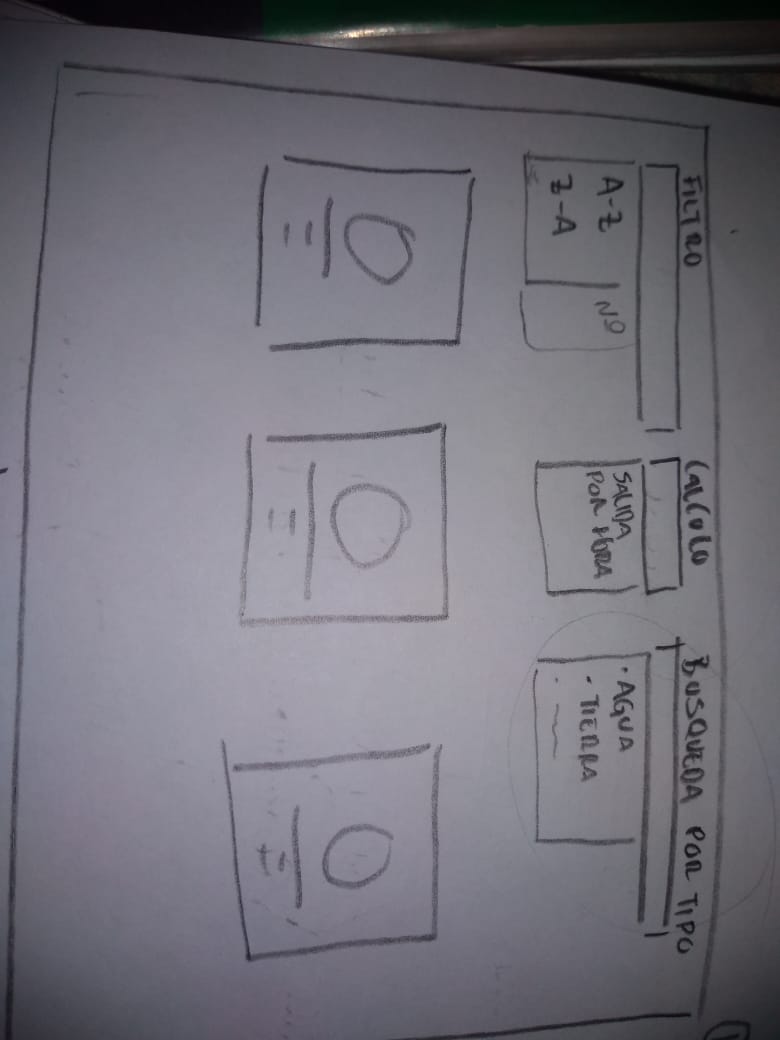 FILTRO
A-Z
Z-A
Nº
CALCULO
SALIDA
POR HORA
BUSQUEDA POR TIPO
· AGUA
· TIERRA